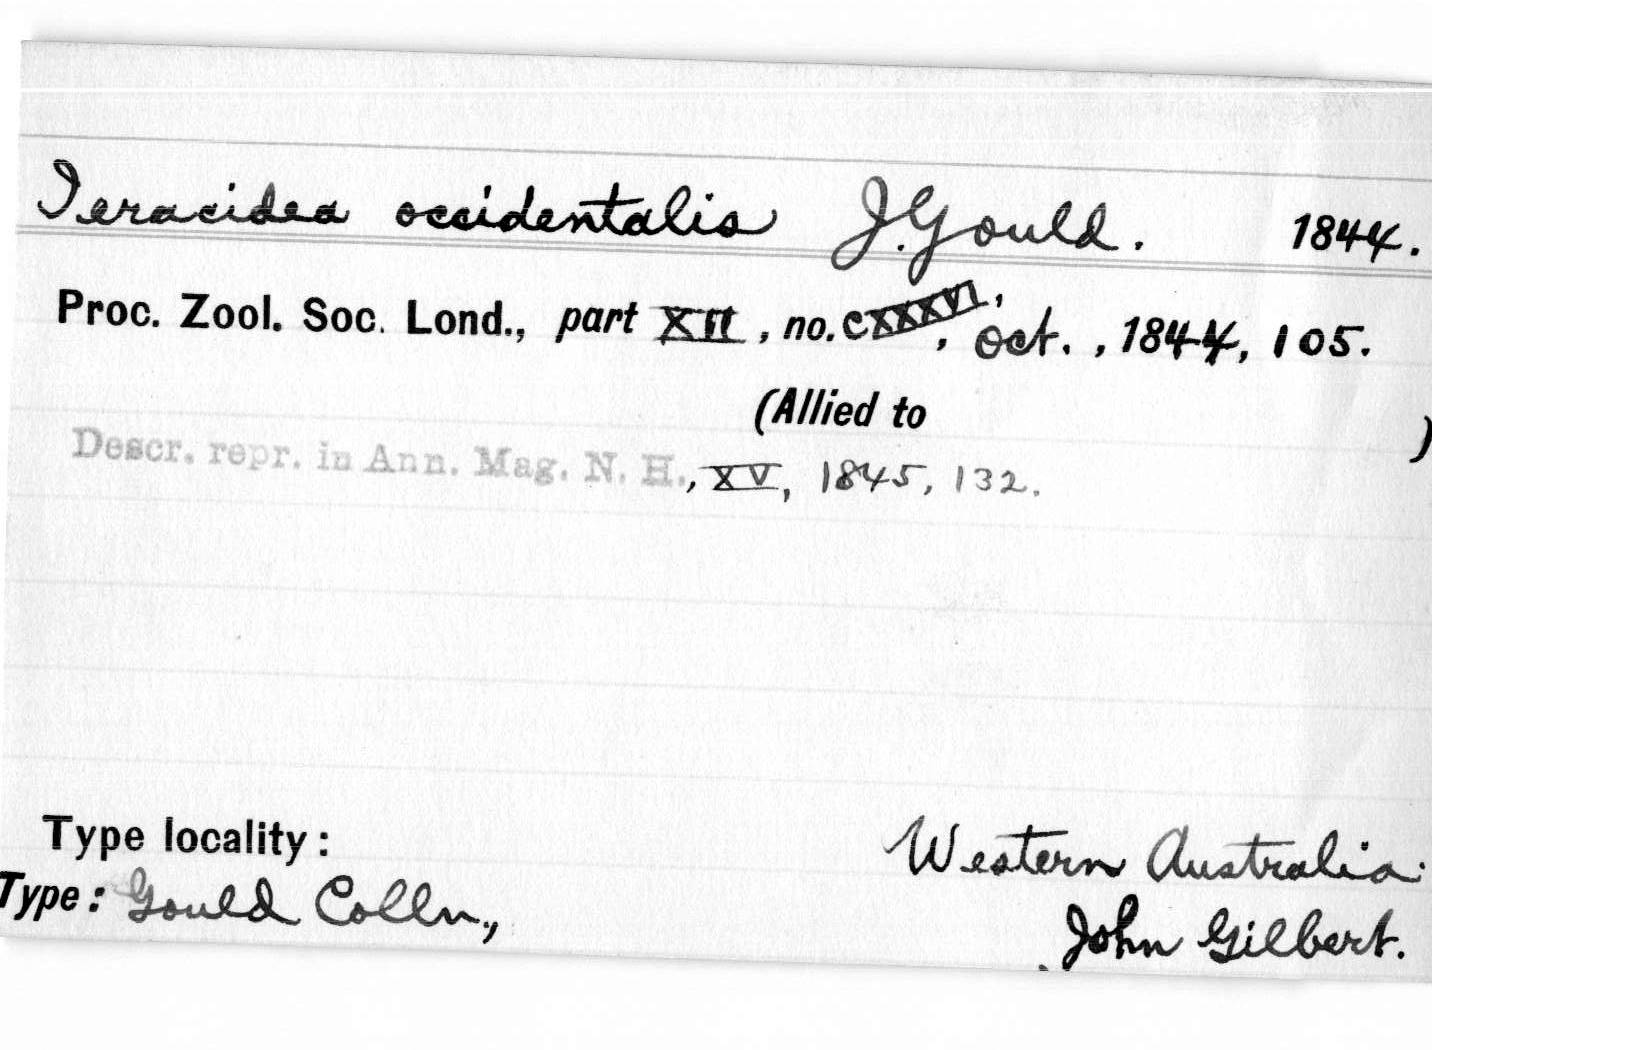 Ieracidea occidentalis J. Gould. 1844.
Proc. Zool. Soc. Lond., part XII, no. CXXXVI, Oct., 1844, 105.
(Allied to )
Descr. repr. in Ann. Mag. N. H., XV, 1845, 132.
Type locality: Western Australia.
Type: Gould Colln., John Gilbert.